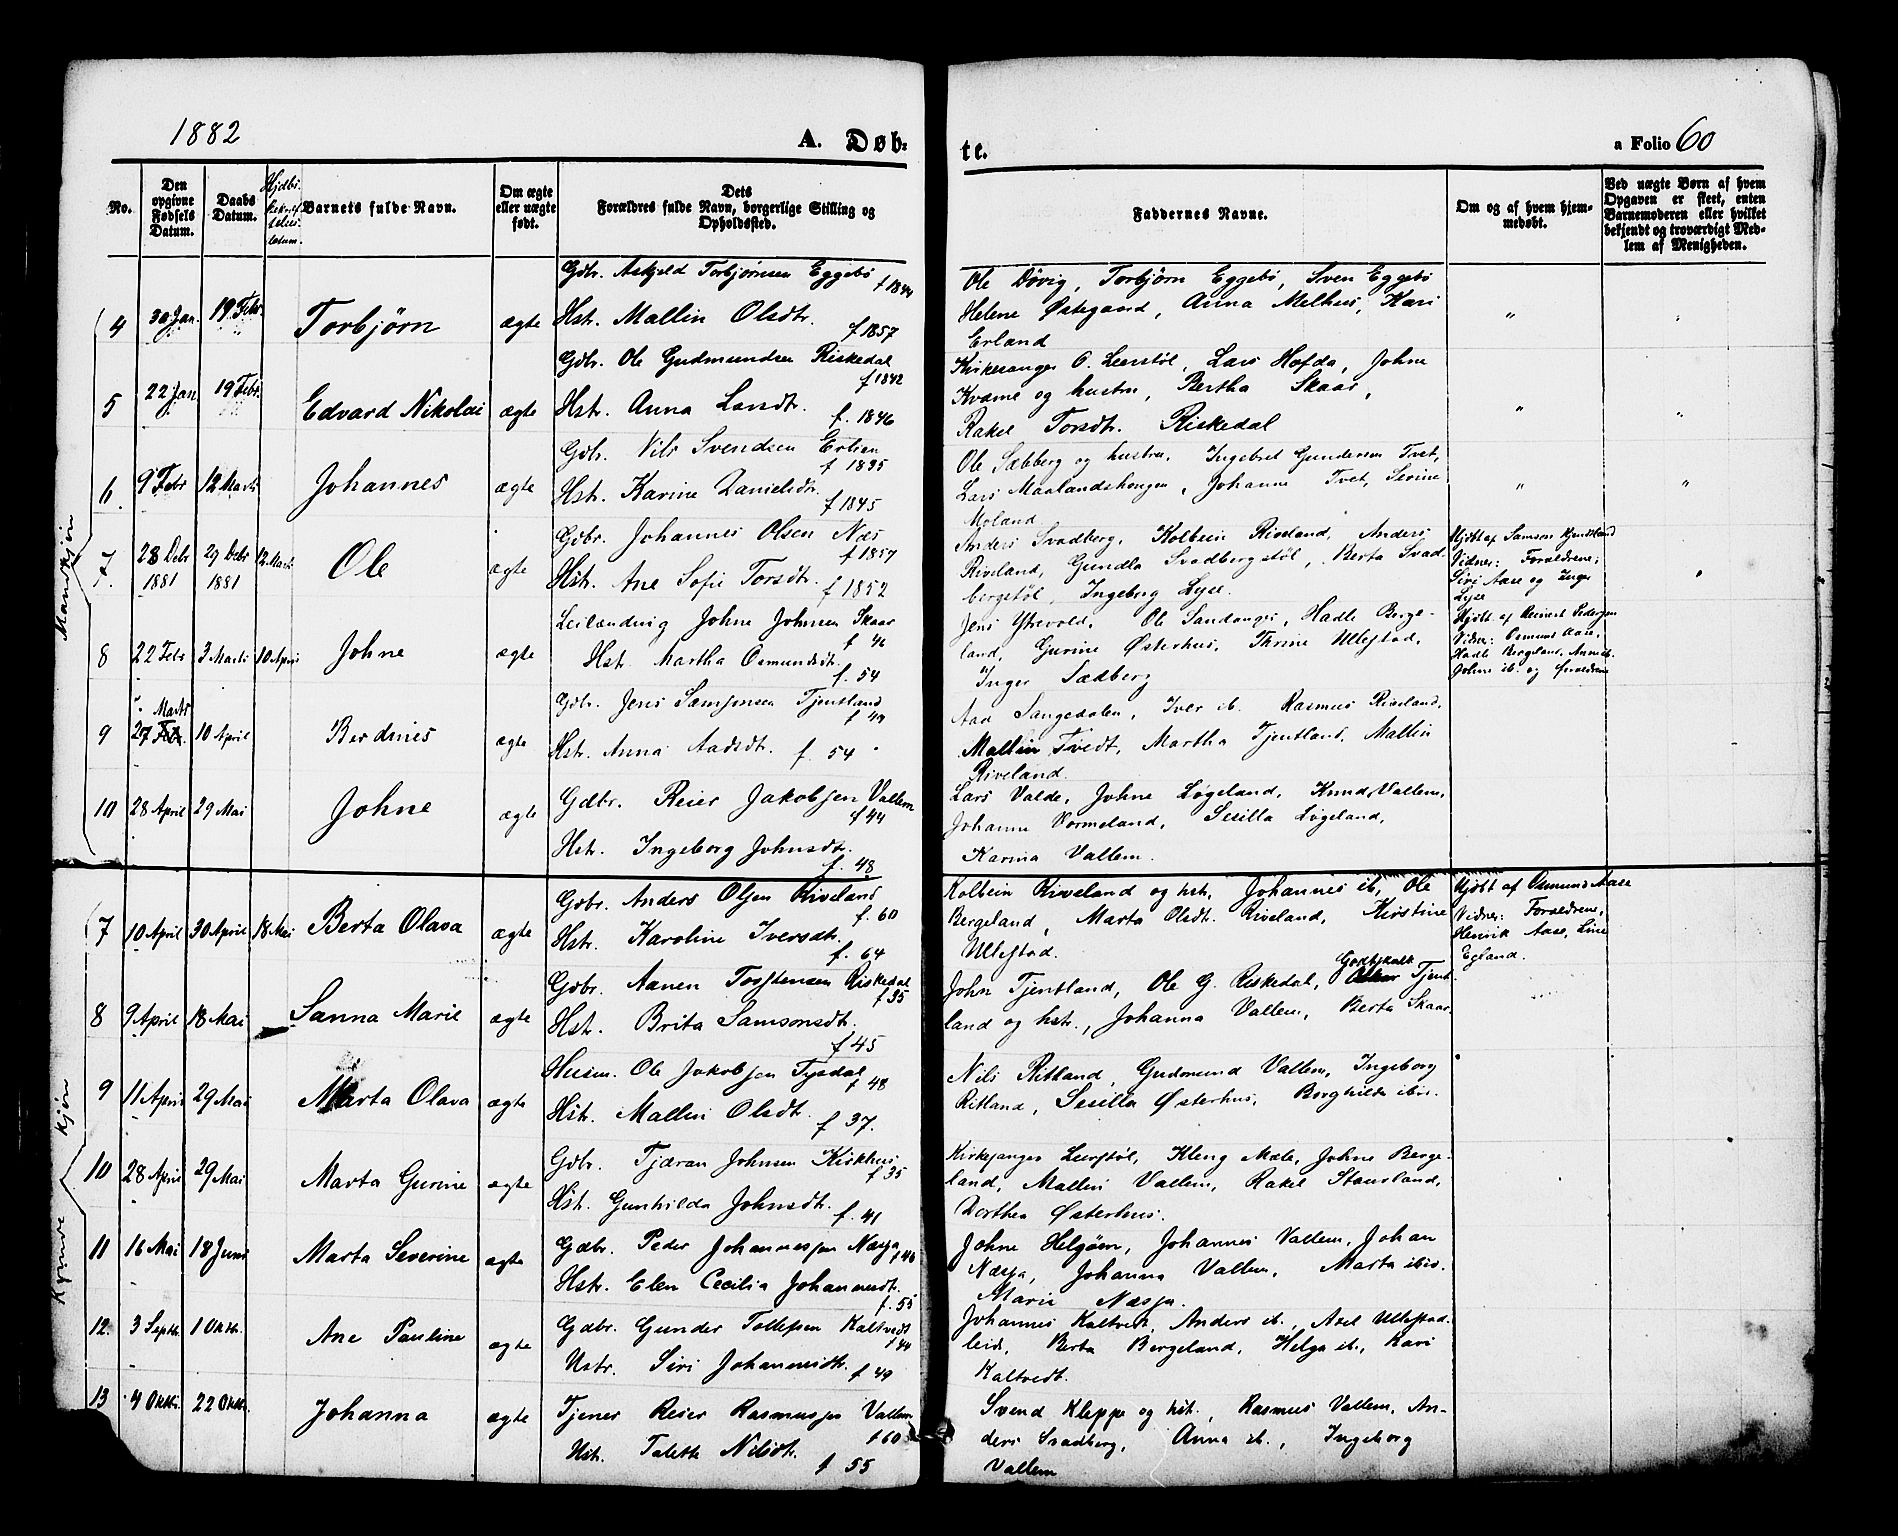 1882
A. Døb=
te.
a Folio 60
No.
Den opgivne Fødsels Datum.
Daabs Datum.
Hjdbs. datum.
Barnets fulde Navn.
Om ægte eller uægte født.
Dets Forældres fulde Navn, borgerlige Stilling og Opholdssted.
Faddernes Navne.
Om og af hvem hjemmedøbt.
Ved uægte Børn af hvem Opgaven er skeet, enten Barnemoderen eller hvilket bekjendt og troværdigt Medlem af Menigheden.
Mandkjøn
4 30 Jan. 19 Febr. Torbjørn ægte
Gdbr. Askjeld Torbjørnsen Eggebø f 1844
Hstr. Mallin Olsdtr. f 1857
Ole Døvig, Torbjørn Eggebø, Sven Eggebø
Helene Østegaard, Anna Melhus, Kari
Erland
"
5 22 Jan. 19 Febr. Edvard Nikolai ægte
Gdbr. Ole Gudmundsen Riskedal f 1842
Hstr. Anna Larsdtr. f. 1846
Kirkesanger O. Leerstøl, Lars Hofda, Johne
Kvame og hustru, Bertha Skaar,
Rakel Torsdtr. Riskedal
" "
6 9 Febr 12 Marts Johannes ægte
Gdbr. Nils Svendsen Erlien f 1835
Hstr. Karine Danielsdtr. f 1845
Ole Sæbberg og hustru, Ingebret Gundersen Tvet,
Lars Maalandshougen, Johanne Tvet, Serine
Moland
" "
7. 28 Debr 1881 29 Debr 1881 12 Marts Ole ægte
Gdbr. Johannes Olsen Næs f 1857
Hstr. Ane Sofie Torsdtr. f 1852
Anders Svadberg, Kolbein Riveland, Anders
Riveland, Gundla Svadbergstøl, Berta Svad-
bergstøl, Ingeborg Lyse.
Hjdbt af Samson Kjendtland
Vidner: Forældrene,
Siri Aase og Inger
Lyse
"
8 22 Febr 3 Marts 10 April Johne ægte
Leilænding Johne Johnsen Skaar f 46
Hstr. Martha Osmundsdt. f. 54
Jens Ytrevold, Ole Sandanger, Hadle Berge-
land, Gurine Østerhus, Thrine Ullestad,
Inger Sædberg
Hjdbt. af Reinert Pedersen
Vidner: Osmund Aase,
Hadle Bergeland,
Johne ib. og forældrene
9 27 Marts 10 April Berdines ægte
Gdbr. Jens Samsonsen Tjentland f 49
Hstr. Anna Aadsdt. f. 54
Aad Sangedalen, Iver ib. Rasmus Riveland,
Mallin Tvedt, Martha Tjentland, Mallin
Riveland.
10 28 April 29 Mai Johne ægte
Gdbr. Reier Jakobsen Vallem f 44
Hstr. Ingeborg Johnsdtr. f. 48
Lars Valde, Johne Løgeland, Knud Vallem,
Johanne Vormeland, Sesilla Løgeland,
Karina Vallem.
Kvinde kjøn
7 10 April 30 April 18 Mai Berta Olava ægte
Gdbr. Anders Olsen Riveland f. 60
Hstr. Karoline Iversdt. f. 64
Kolbein Riveland og hst., Johannes ib, Ole
Bergeland, Marta Olsdt. Riveland, Kirstine
Ullestad.
Hjdbt af Osmund Aase
Vidner: Forældrene,
Henrik Aase, Line
Egland.
8 9 April 18 Mai Sanna Marie ægte
Gdbr. Aanen Torstensen Riskedal f 35
Hstr. Brita Samsonsdt. f 45
John Tjentland, Ole G. Riskedal, Godtskalk Tjent-
land og hst., Johanna Vallem, Berta Skaar.
9 11 April 29 Mai Marta Olava ægte
Husm. Ole Jakobsen Tysdal f 48
Hst. Mallin Olsdt. f 37.
Nils Ritland, Gudmund Vallem, Ingeborg
Ritland, Sesilla Østerhus, Borghilde ibid.
10 28 April 29 Mai Marta Gurine ægte
Gdbr. Tjæran Johnsen Kirkhus f 35
Hst. Gunhilda Johnsdt. f. 41
Kirkesanger Leerstøl, Kleng Mæle, Johne Berge-
land, Mallin Vallem, Rakel Stausland,
Dorthea Østerhus.
11 16 Mai 18 Juni Marta Severine ægte
Gdbr. Peder Johannessen Næsja f 46
Hst. Elen Cecilia Johannesdt. f. 55
Johne Helgøen, Johannes Vallem, Johan
Næsja, Johanna Vallem, Marta ibid.
Marie Næsja.
12. 3 Septr. 1 Oktr. Ane Pauline ægte
Gdbr. Gunder Tollefsen Kaltvedt f 44
Hstr. Siri Johannesdt. f 49
Johannes Kaltvedt, Anders ib., Axel Ullestad-
leid, Berta Bergeland, Helga ib., Kari
Kaltvedt.
13 4 Oktr. 22 Oktr. Johanna ægte
Tjener Reier Rasmussen Vallem f 60
Hst. Talette Nilsdt. f 55
Svend Kleppe og hst., Rasmus Vallem, An-
ders Svadberg, Anna ib., Ingeborg
Vallem